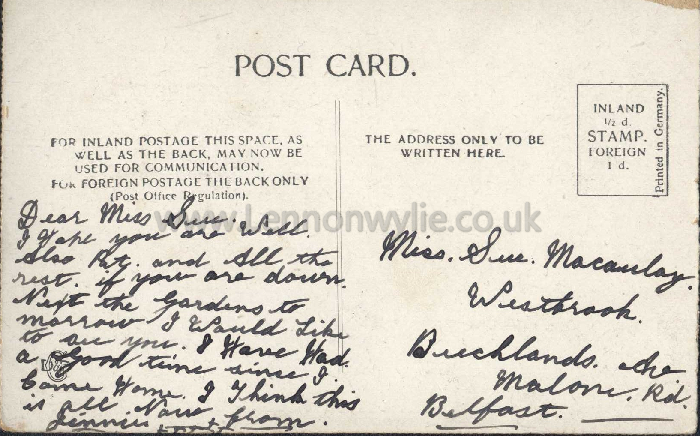 POST CARD.
FOR INLAND POSTAGE THIS SPACE, AS
WELL AS THE BACK, MAY NOW BE
USED FOR COMMUNICATION.
FOR FOREIGN POSTAGE THE BACK ONLY
(Post Office Regulation).
THE ADDRESS ONLY TO BE
WRITTEN HERE.
INLAND
½ d.
STAMP.
FOREIGN
1 d.
Printed in Germany.
www.Lennonwylie.co.uk
Dear Miss Sue.
I Hope you are Well.
Also Pat. and All the
rest. if you are down.
Next the Gardens to
morrow I Would Like
to see you. I Have Had.
a Good time since I.
Came Home. I Think this
is all Now from.
Miss. Sue. Macaulay.
Westbrook.
Beechlands. the
Malone. Rd.
Belfast.